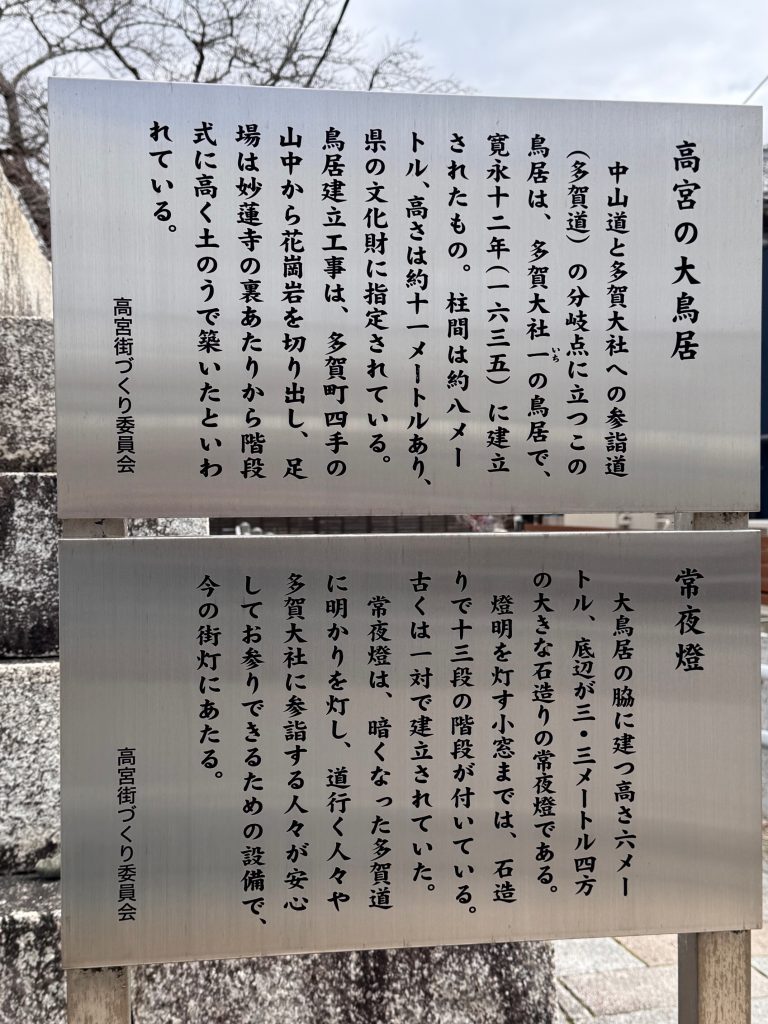 高宮の大鳥居
中山道と多賀大社への参詣道
(多賀道)の分岐点に立つこの
鳥居は、多賀大社一の鳥居で、
いち
寛永十二年(一六三五)に建立
されたもの。柱間は約八メー
トル、高さは約十一メートルあり、
県の文化財に指定されている。
鳥居建立工事は、多賀町四手の
山中から花崗岩を切り出し、足
場は妙蓮寺の裏あたりから階段
式に高く土のうで築いたといわ
れている。
高宮街づくり委員会
常夜燈
大鳥居の脇に建つ高さ六メー
トル、底辺が三・三メートル四方
の大きな石造りの常夜燈である。
燈明を灯す小窓までは、石造
りで十三段の階段が付いている。
古くは一対で建立されていた。
常夜燈は、暗くなった多賀道
に明かりを灯し、道行く人々や
多賀大社に参詣する人々が安心
してお参りできるための設備で、
今の街灯にあたる。
高宮街づくり委員会